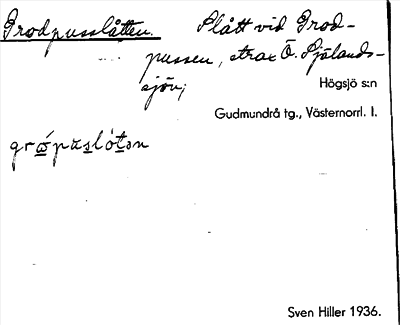 Grodpusslåtten. Slått vid Grod-
pussen, strax Ö. Själands-
sjön;
Högsjö s:n
Gudmundrå tg., Västernorrl. l.
grω̄́pųs̲lót̲ən
Sven Hiller 1936.